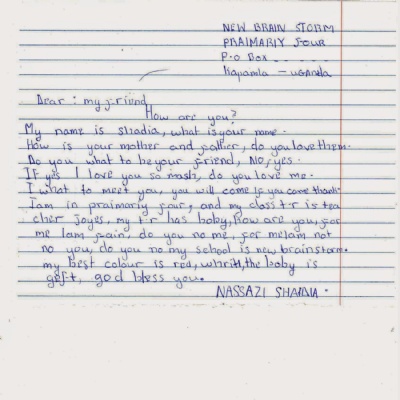 NEW BRAIN STORM
PRAIMARIY FOUR
P.O Box ...
Kapamla - uganda
Dear : my friend
How are you?
My name is shadia, what is your mme.
How is your mother and father, do you love them.
Do you what to be your friend, No, yes.
If yes I love you so mash, do you love me.
I what to meet you, you will come if you come thank
Iam in praimariy four, and my class tr is tea
cher Joyes, my tr has baby, How are you, for
me Iam fain, do you no me, for me Iam not
no you, do you no my school is new brainstorm.
my best colour is red, whrith, the baby is
geft, god bless you.
NASSAZI SHAIDIA.